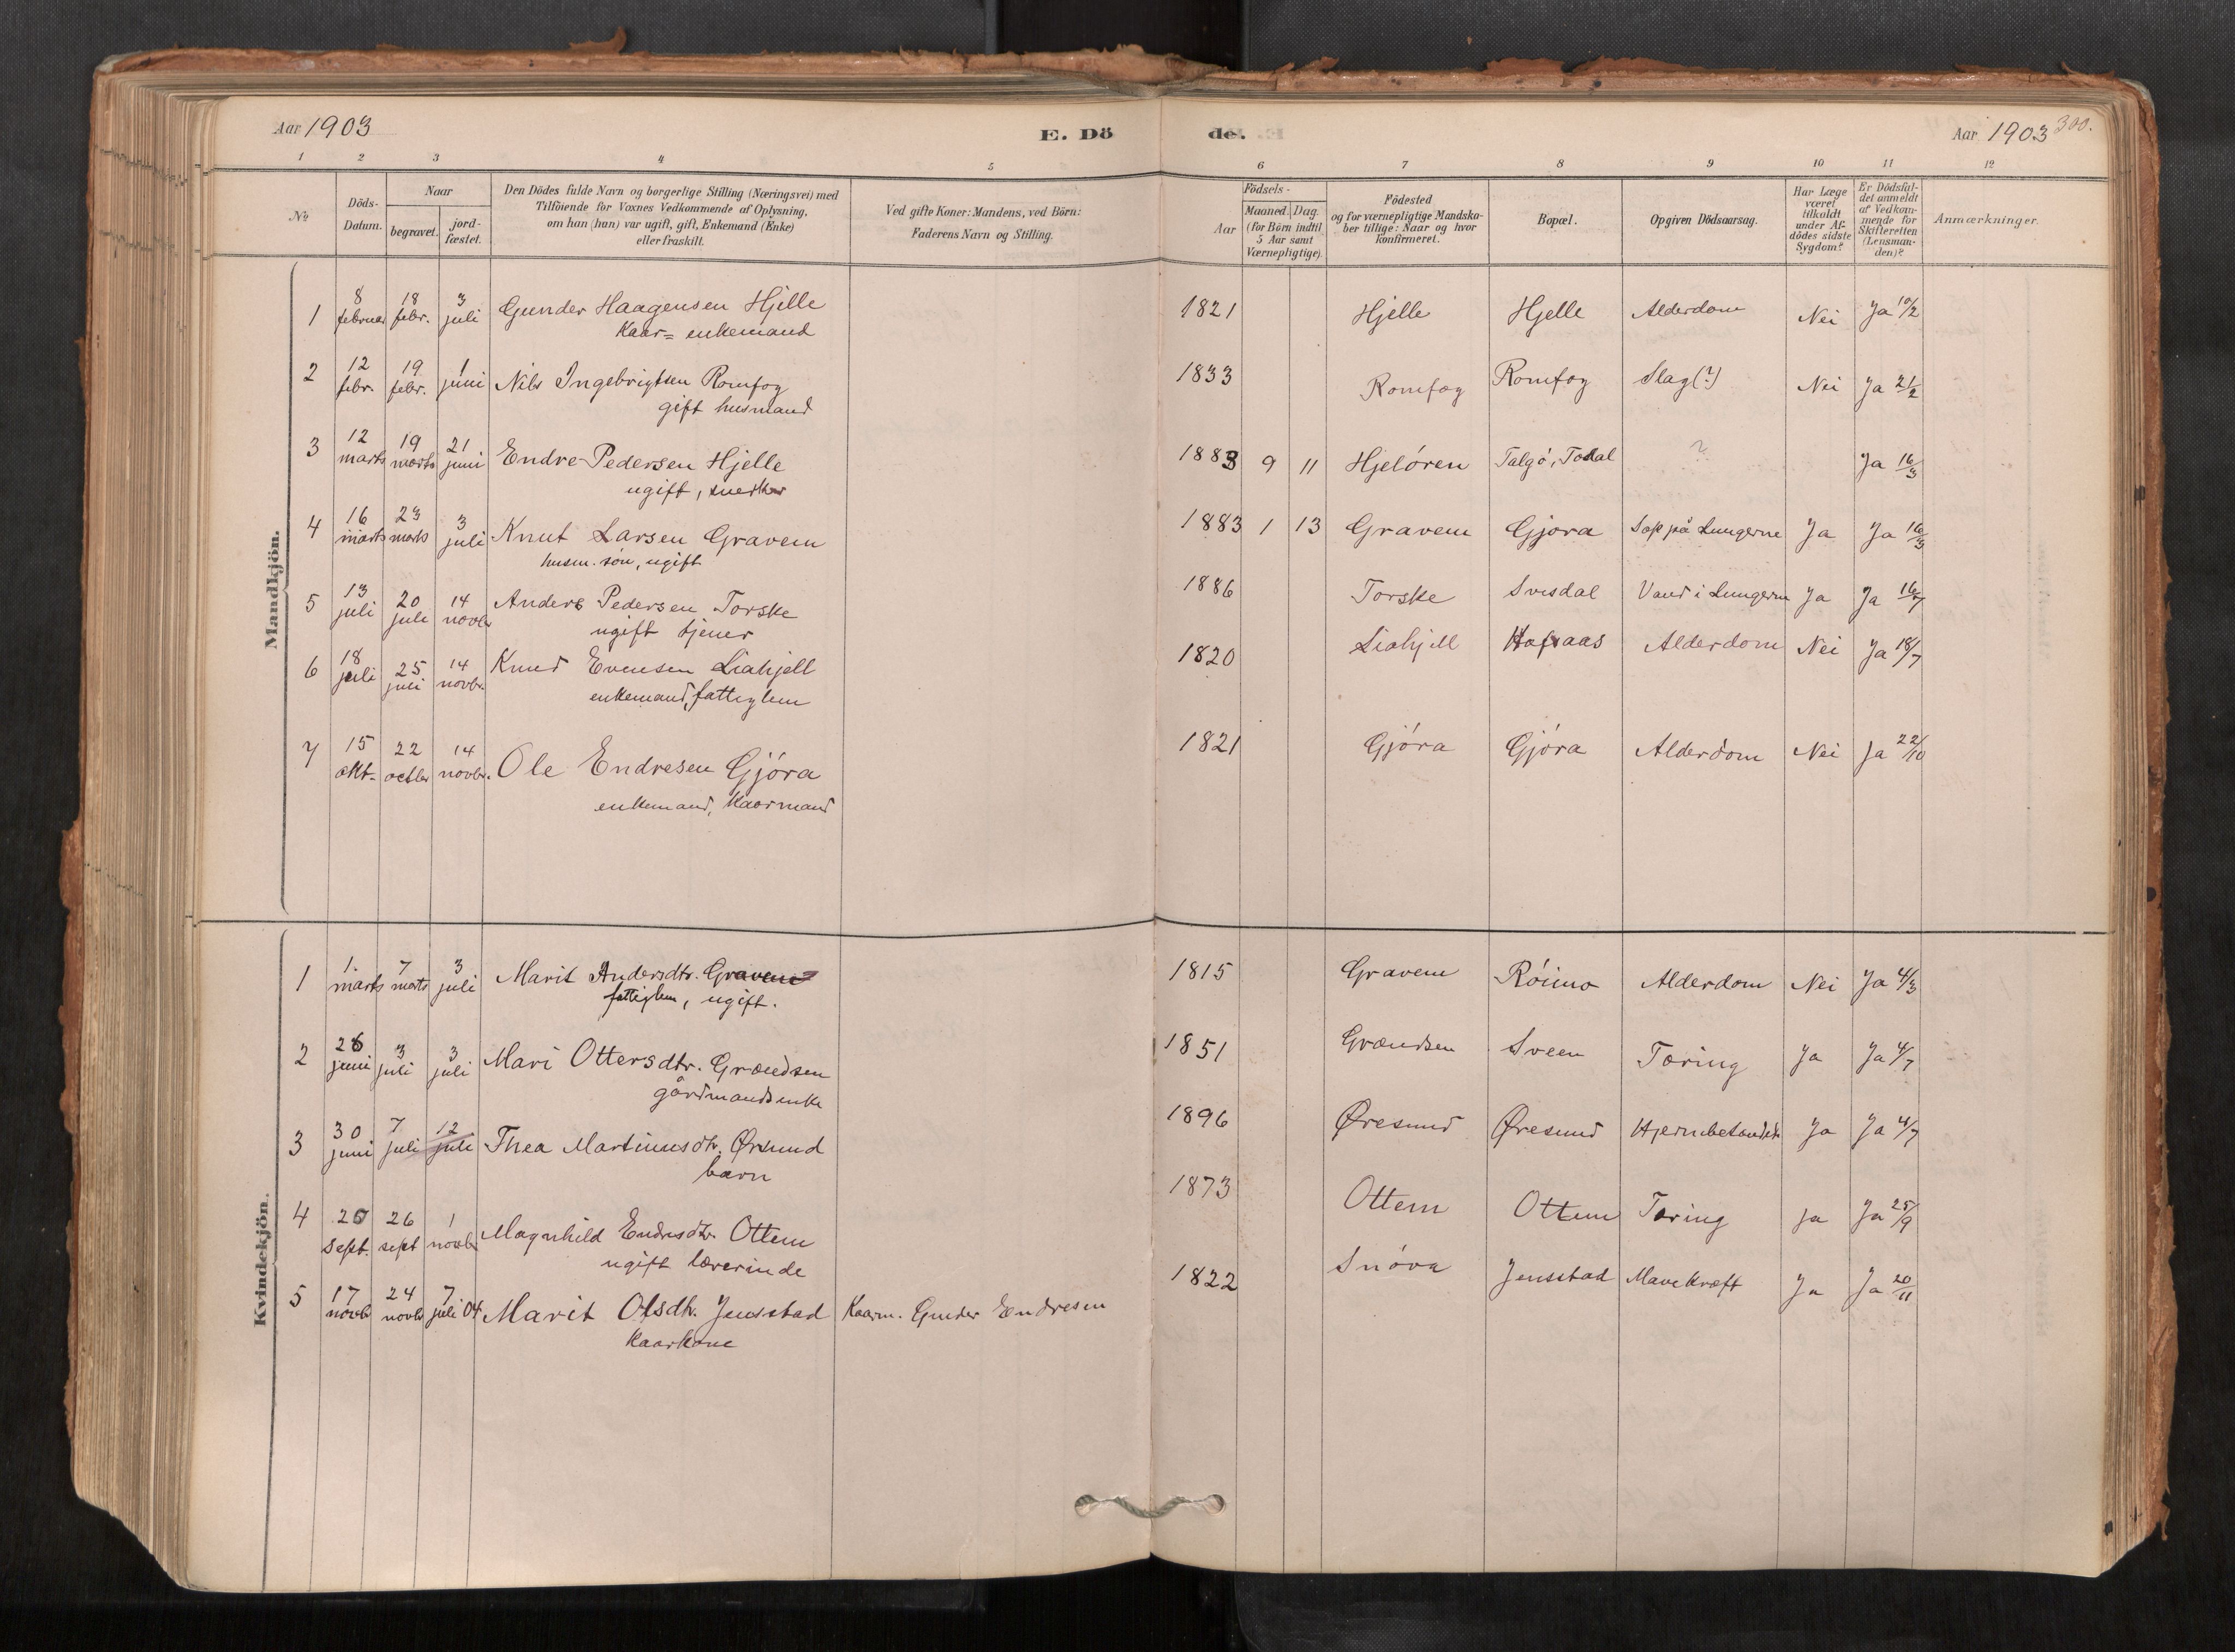 Aar 1903
E. Dö de.
Aar 1903 300.
1 2 3 4 5 6 7 8 9 10 11 12
No
Döds-Datum.
Naar
begravet.
jord-fæstet.
Den Dödes fulde Navn og borgerlige Stilling (Næringsvei) med
Tilföiende for Voxnes Vedkommende af Oplysning,
om han (hun) var ugift, gift, Enkemand (Enke)
eller fraskilt.
Ved gifte Koner: Mandens, ved Börn:
Faderens Navn og Stilling.
Födsels-
Aar
Maaned. Dag.
(for Börn indtil
5 Aar samt
Værnepligtige)
Födested
og for værnepligtige Mandska-
ber tillige: Naar og hvor
konfirmeret.
Bopæl.
Opgiven Dödsaarsag.
Har Læge
været
tilkaldt
under Af-
dödes sidste
Sygdom?
Er Dödsfal-
det anmeldt
af Vedkom-
mende for
Skifteretten
(Lensman-
den)?
Anmærkninger.
Mandkjön.
1 8 februar 18 febr. 3 juli Gunder Haagensen Hjelle 1821 Hjelle Hjelle Alderdom Nei Ja 10/2
Kaar= enkemand
2 12 febr. 19 febr. 1 juni Nils Ingebrigtsen Romfog 1833 Romfog Romfog Slag (?) Nei Ja 21/2
gift husmand
3 12 marts 19 marts 21 juni Endre Pedersen Hjelle 1883 9 11 Hjelören Talgö, Todal ? Ja 16/3
ugift, snedker
4 16 marts 23 marts 3 juli Knut Larsen Gravem 1883 1 13 Gravem Gjora Sop på Lungerne Ja Ja 16/3
husm. sön, ugift
5 13 juli 20 juli 14 novbr Anders Pedersen Torske 1886 Torske Svisdal Vand i Lungerne Ja Ja 16/7
ugift tjener
6 18 juli 25 juli 14 novbr. Knud Evensen Liahjell 1820 Liahjell Hafsaas Alderdom Nei Ja 18/7
enkemand, fattiglem
7 15 okt. 22 octbr 14 novbr. Ole Endresen Gjöra 1821 Gjöra Gjöra Alderdom Nei Ja 22/10
enkemand, Kaarmand
Kvindekjön.
1 1. marts 7 marts 3 juli Marit Andersdtr. Gravem 1815 Gravem Röimo Alderdom Nei Ja 4/3
fattiglem, ugift.
2 26 juni 3 juli 3 juli Mari Ottersdtr. Grændsen 1851 Grændsen Sveen Tæring Ja Ja 4/7
gårdmandsenke
3 30 juni 7 juli 12 juli Thea Martinusdtr. Øresund 1896 Øresund Øresund Hjernebetændelse Ja Ja 4/7
barn
4 20 Sept. 26 sept 1 novbr Magnhild Endresdtr. Ottem 1873 Ottem Ottem Tæring ja Ja 25/9
ugift lærerinde
5 17 novbr 24 novbr 7 juli 04 Marit Olsdtr. Jensstad Kaarm. Gunder Endresen 1822 Snöva Jensstad Mavekræft Ja Ja 20/11
Kaarkone